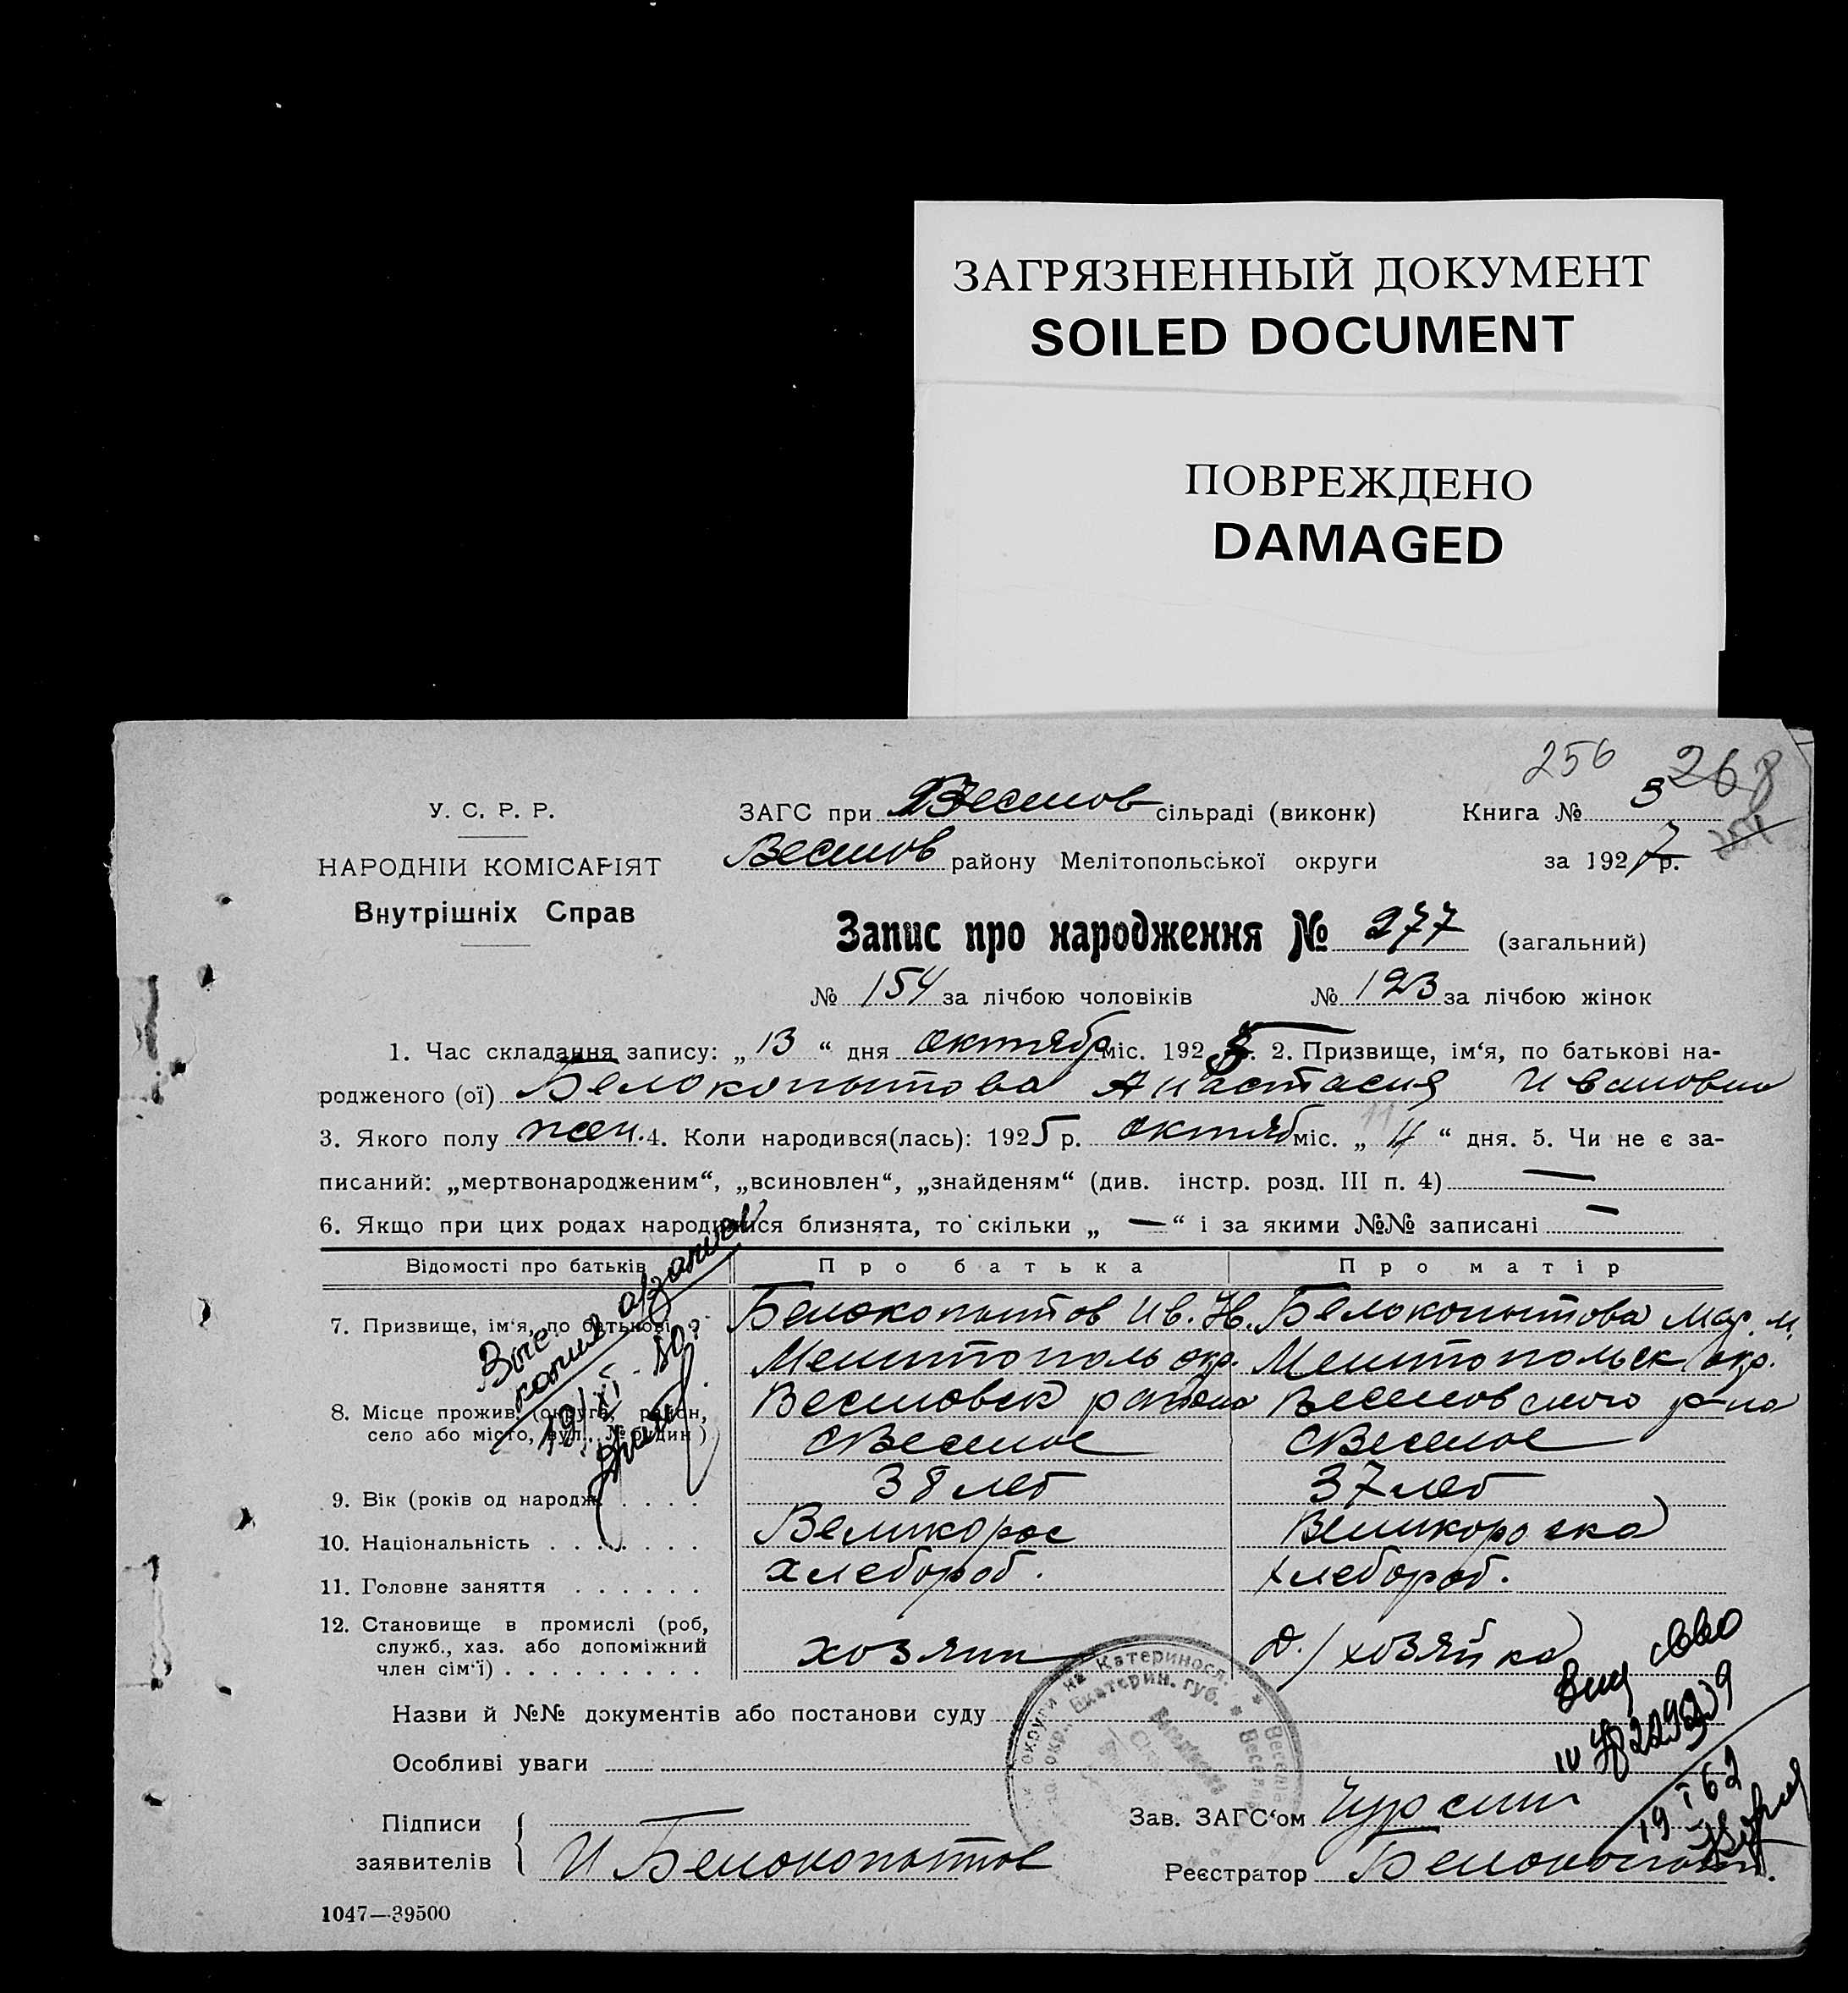 ЗАГРЯЗНЕННЫЙ ДОКУМЕНТ
SOILED DOCUMENT
ПОВРЕЖДЕНО
DAMAGED
256 268
У. С. Р. Р.
НАРОДНІЙ КОМІСАРІЯТ
Внутрішніх Справ
ЗАГС при Веселов сільраді (виконк) Книга № 3
Веселов району Мелітопольської округи за 1927 р.
Запис про народження № 277 (загальний)
№ 154 за лічбою чоловіків № 123 за лічбою жінок
1. Час складання запису: „13“ дня октября міс. 1925 р. 2. Призвище, ім‘я, по батькові на-
родженого (ої) Белокопытова Анастасия Ивановна
3. Якого полу жен. 4. Коли народився(лась): 1925 р. октяб міс. „11“ дня. 5. Чи не є за-
писаний: „мертвонародженим“, „всиновлен“, „знайденям“ (див. інстр. розд. III п. 4) —
6. Якщо при цих родах народилися близнята, то скільки „ — “ і за якими №№ записані —
Відомості про батьків Про батька Про матір
7. Призвище, ім‘я, по батькові Белокопытов Ив. Белокопытова Мар. И.
Мелитополь окр. Мелитопольск окр.
8. Місце прожив. (округа, район, село або місто, вул., № будин.) Веселовск района Веселовского р-на
с Веселое с Веселое
9. Вік (років од народж. 38 лет 37 лет
10. Національність Великорос Великороска
11. Головне заняття хлебороб. хлебороб.
12. Становище в промислі (роб,
служб., хаз. або допоміжний
член сім‘ї) хозяин д./хозяйка
Назви й №№ документів або постанови суду
Особливі уваги
Підписи
заявителів И Белокопытов
Зав. ЗАГС‘ом Чурсин
Реєстратор
копия
19/XI-50
19 I 62
Катеринося.
Екатерин. губ.
1047—39500